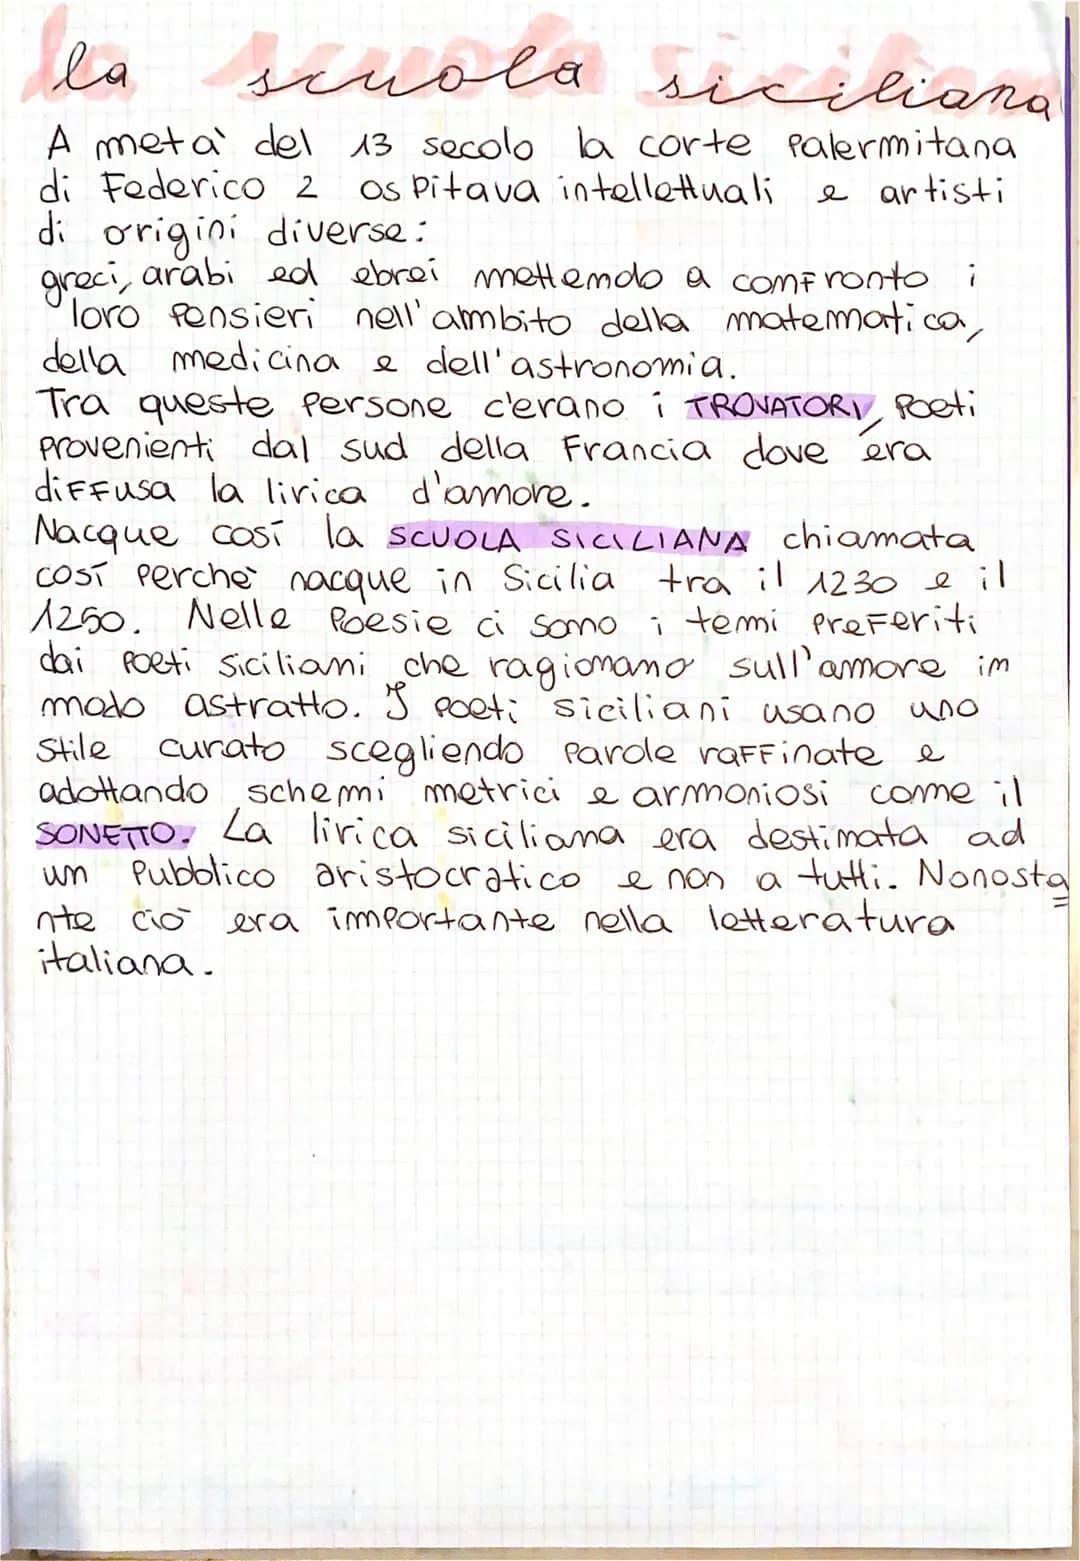 la scuola siciliana
A metà del 13 secolo la corte palermitana
di Federico 2 ospitava intellettuali e artisti
di origini diverse:
greci, arabi ed ebrei mettendo a confronto i
loro pensieri nell'ambito della matematica,
della medicina e dell'astronomia.
Tra queste persone c'erano i TROVATORI, poeti
provenienti dal sud della Francia dove era
diffusa la lirica d'amore.
Nacque così la SCUOLA SICILIANA chiamata
così perchè nacque in Sicilia tra il 1230 e il
1250. Nelle poesie ci sono i temi preferiti
dai poeti siciliani che ragionano sull'amore in
modo astratto. I poeti siciliani usano uno
stile curato scegliendo parole raffinate e
adottando schemi metrici e armoniosi come il
SONETTO. La lirica siciliana era destinata ad
un pubblico aristocratico e non a tutti. Nonosta=
nte ciò era importante nella letteratura
italiana.